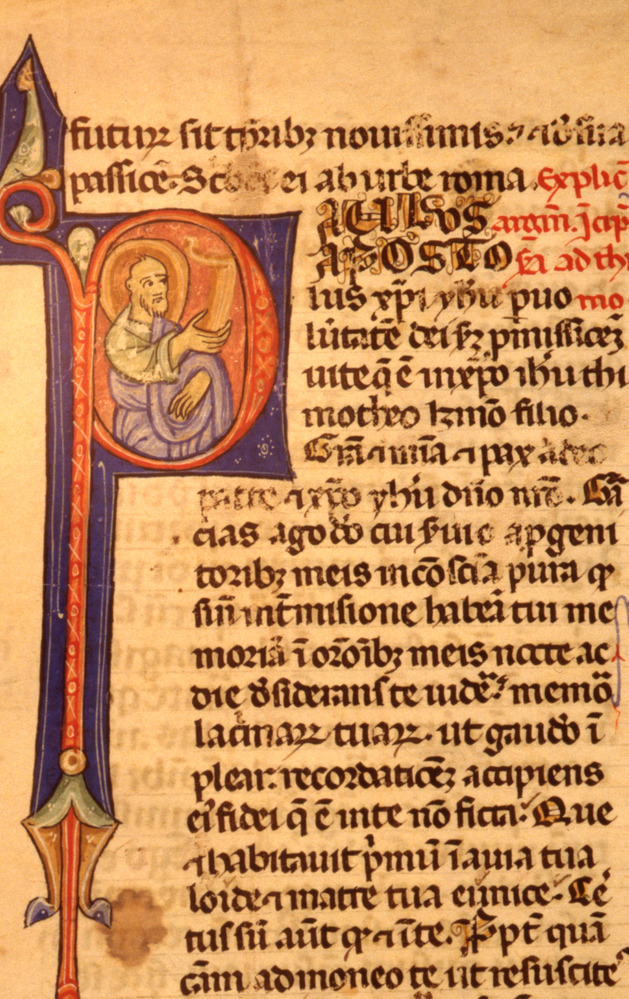 futur sit tp̄ribꝫ nouissimis ⁊ de sua
passiōe. Scribens ei ab urbe roma. Explic̄
PAULUS argm̄. Īcip̄
APOSTO ad thi
lus xp̄i yhū p uo mo
lūtatē dei scꝫ p̄missiōeꝫ
uite q̄ ē in xp̄o ihū thi
motheo kr̄mō filio.
Gr̄a ⁊ mīa ⁊ pax a deo
patre ⁊ xp̄o yhū dn̄o nr̄o. Grā
cias ago dō cui seruio a p̄geni
toribꝫ meis in cōsciā pura qͥ
siñ int̄misione habeā tui me
moriā ī orōibꝫ meis nocte ac
die d̄siderans te uidē⁊ memō
lacrimaꝝ tuaꝝ. ut gaudō ī
plear. recordatiōeꝫ accipiens
ei fidei q̄ ē in te nō ficta. Que
⁊ habitauit p̄mū ī auia tua
loide ⁊ matre tua eunice. Cē
tus sū aūt qͥ ⁊ ī te. Ppt̄ quā
cām admoneo te ut resuscite